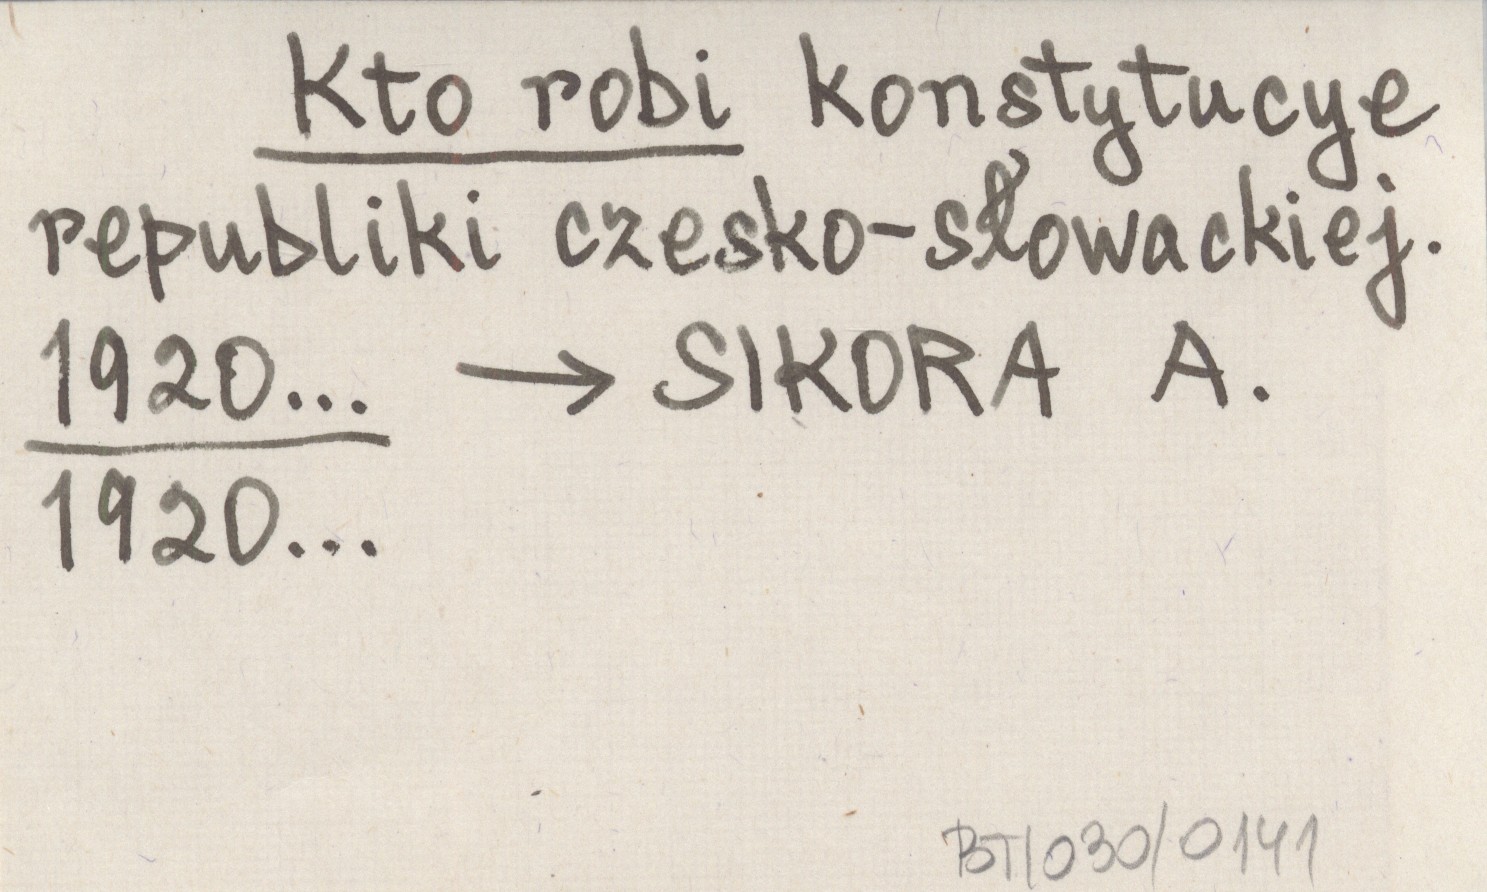 Kto robi konstytucye
republiki czesko-słowackiej.
1920... → SIKORA A.
1920...
BT/030/0141